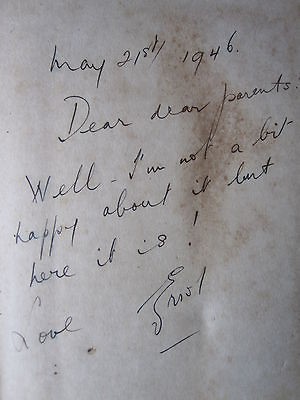 May 21st 1946.
Dear dear parents.
Well - I'm not a bit
happy about it but
here it is!
Love Errol